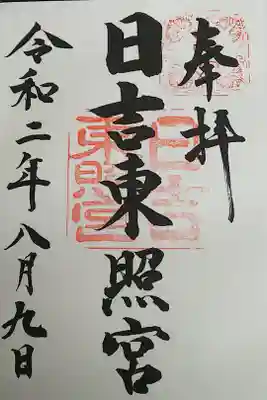 奉拝
日吉東照宮
令和二年八月九日
日吉
東照宮